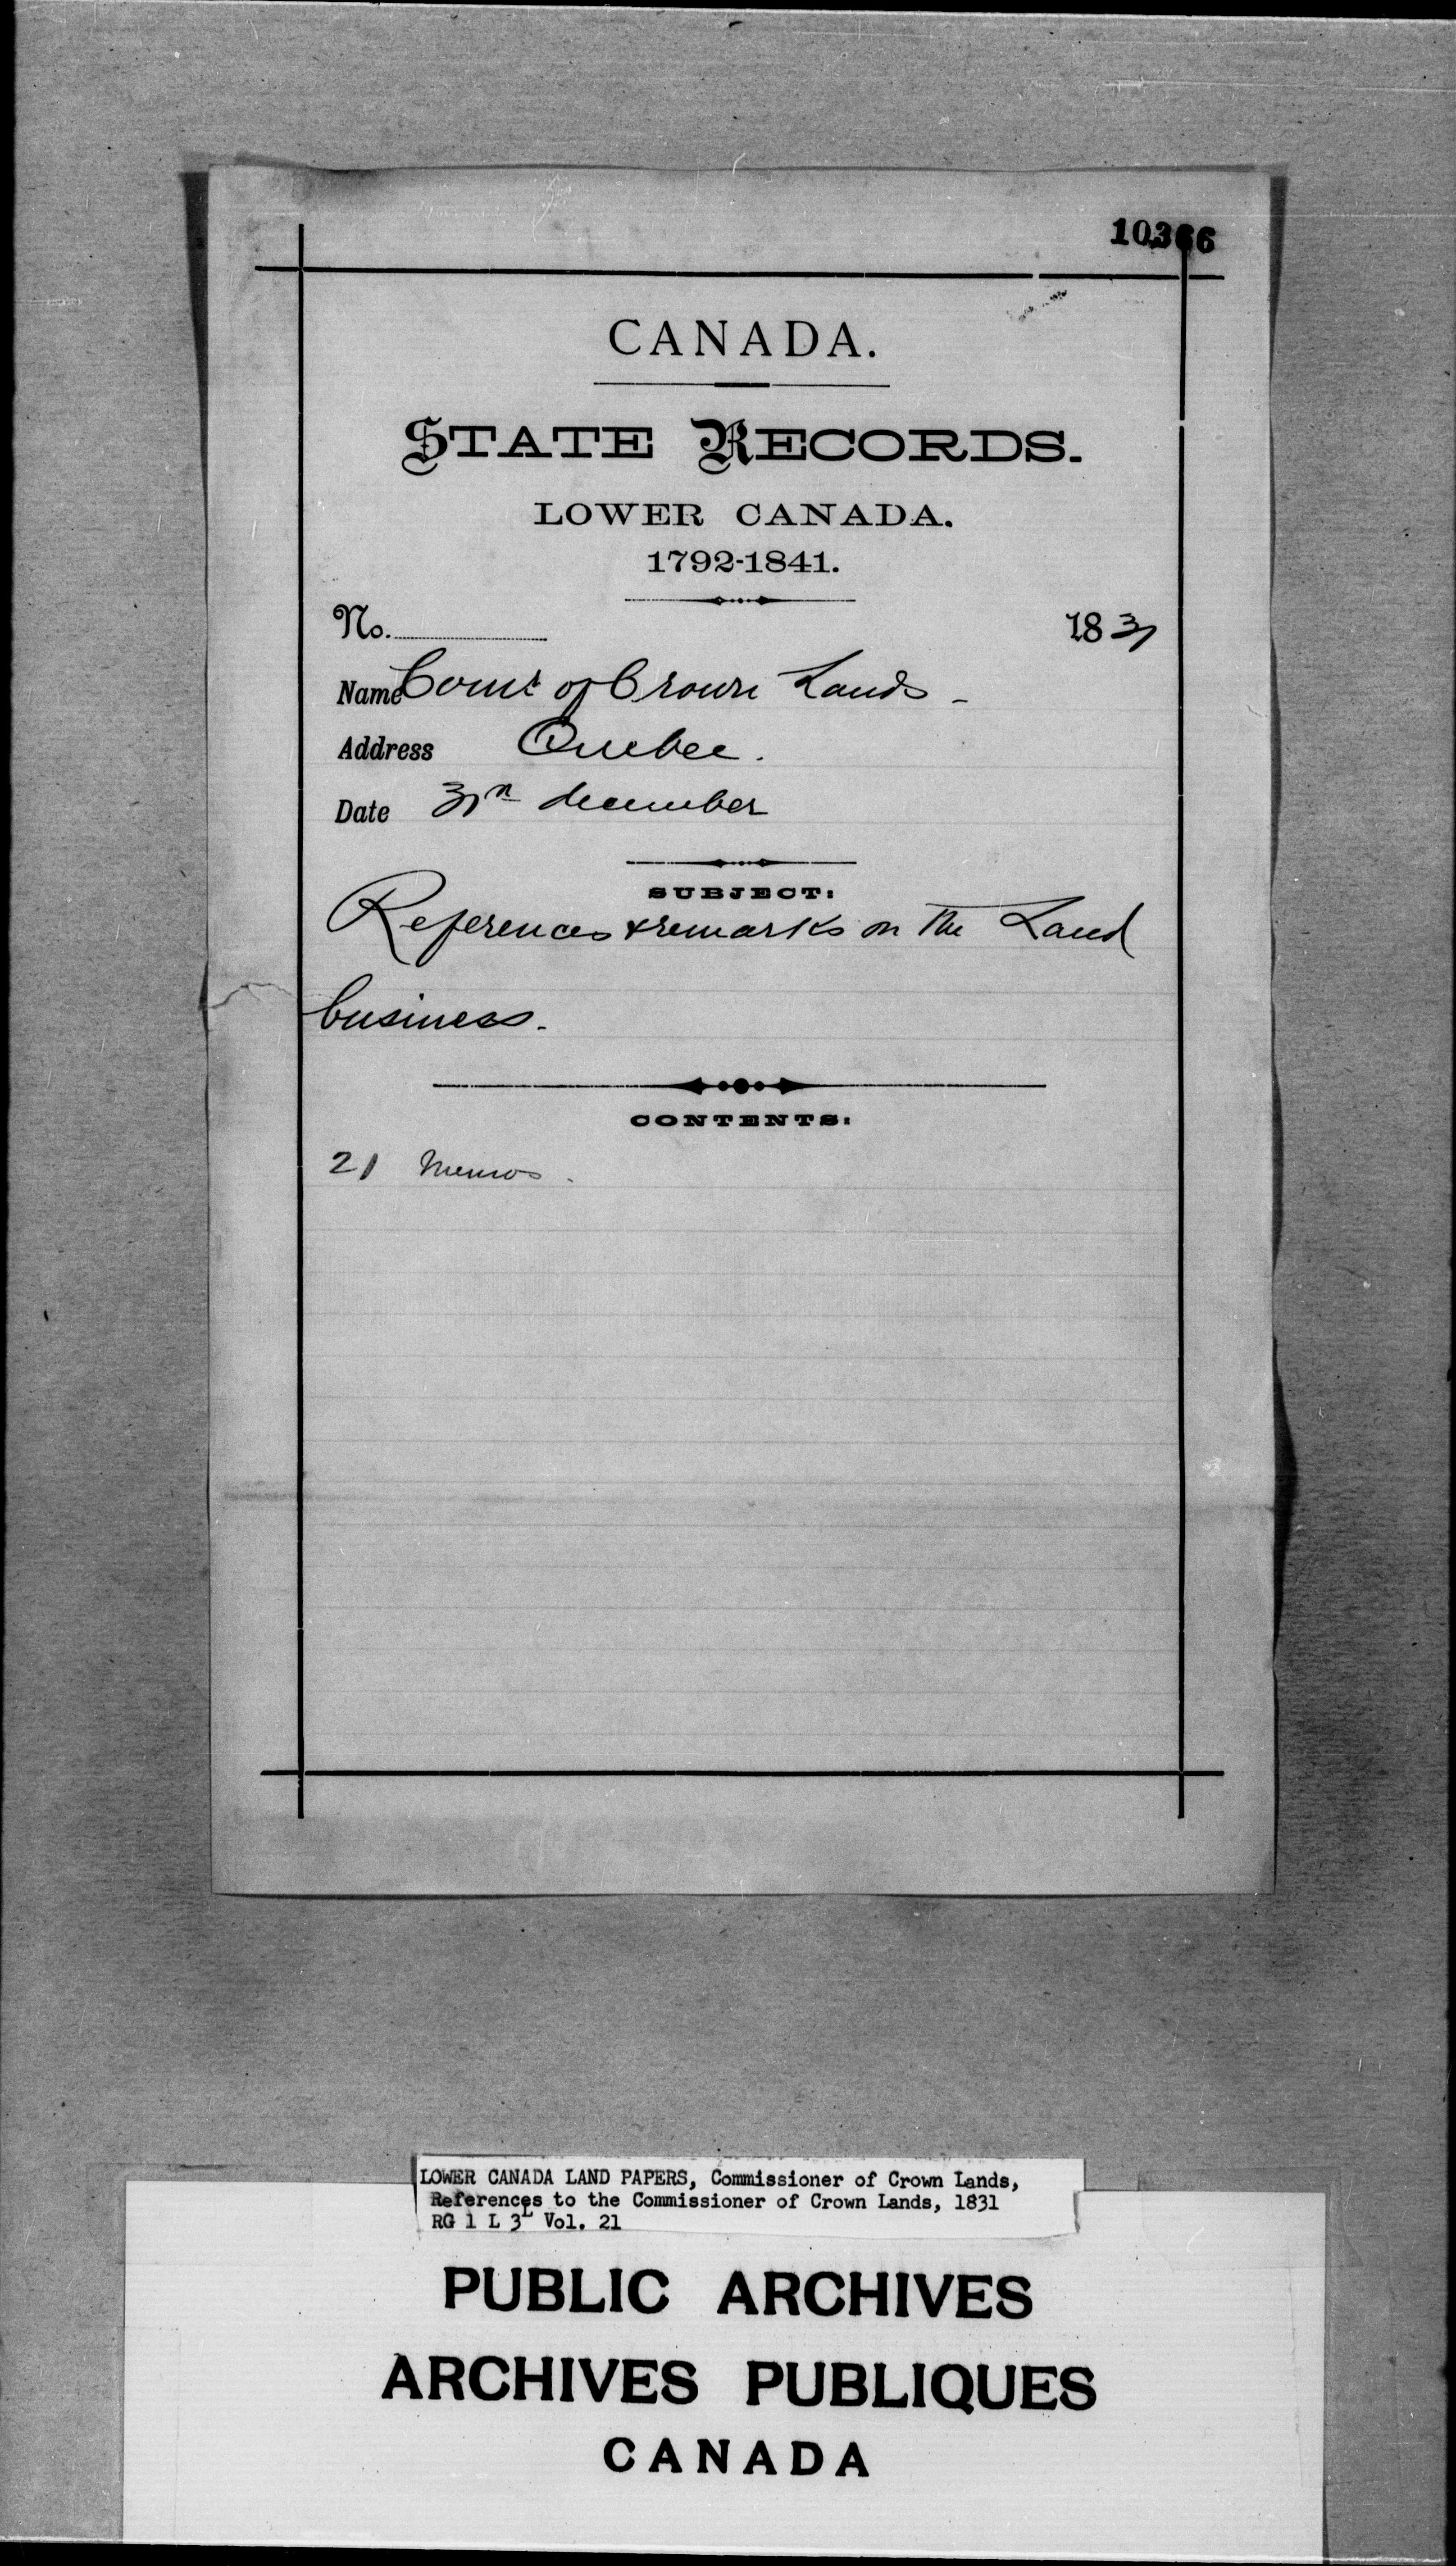 10366
CANADA.
STATE RECORDS.
LOWER CANADA.
1792-1841.
No. 1831
Name Comr of Crown Lands -
Address Quebec.
Date december
SUBJECT:
References & remarks on the Land
business.
CONTENTS:
21 Memos.
LOWER CANADA LAND PAPERS, Commissioner of Crown Lands,
References to the Commissioner of Crown Lands, 1831
RG 1 L 3L Vol. 21
PUBLIC ARCHIVES
ARCHIVES PUBLIQUES
CANADA